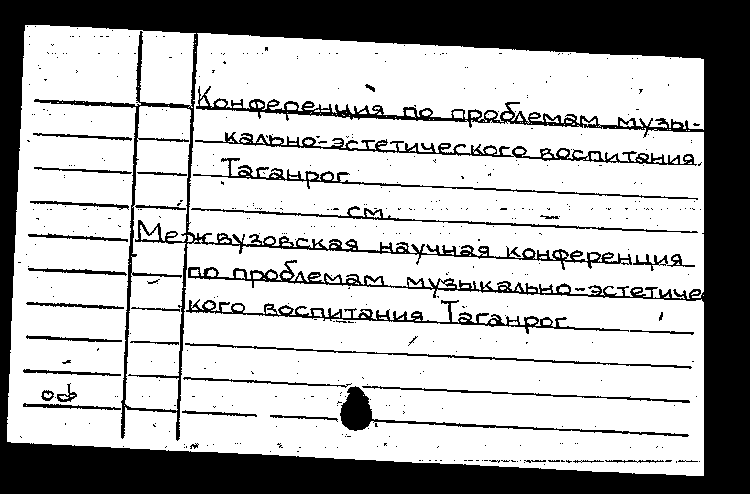 Конференция по проблемам музы-
кально-эстетического воспитания.
Таганрог.
см.
Межвузовская научная конференция
по проблемам музыкально-эстетиче
кого воспитания. Таганрог.
оф